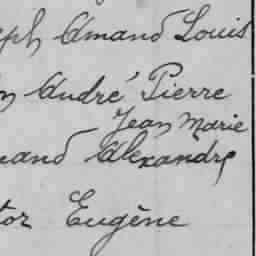 eph Amand Louis
n André Pierre
Jean Marie
mand Alexandre
tor Eugène